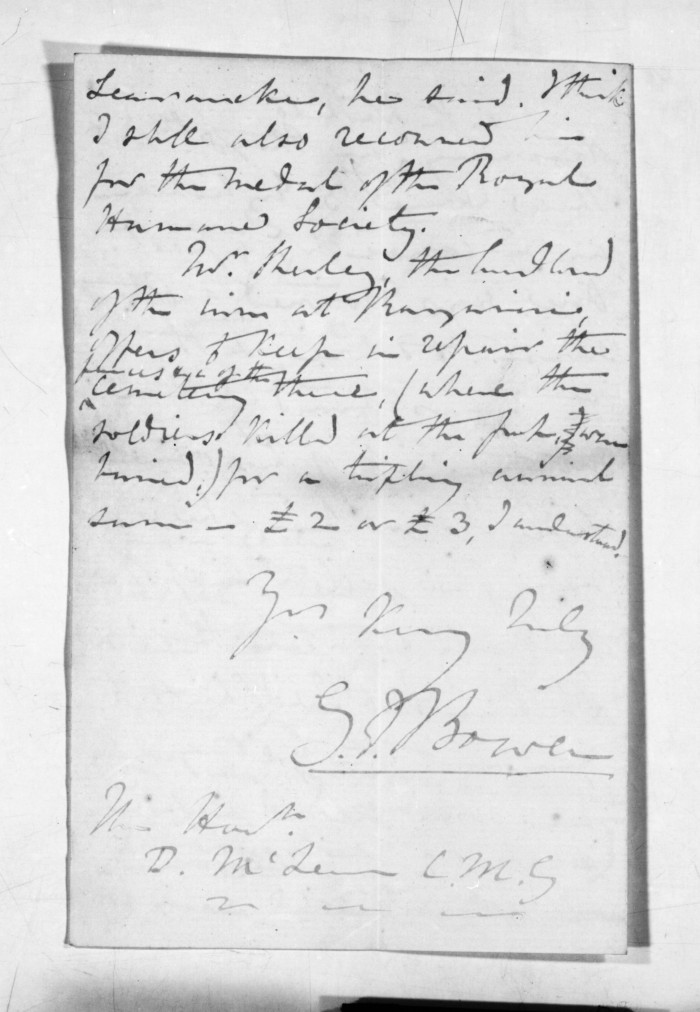 he said. I think
I shall also recommend him
for the medal of the Royal
Humane Society.
Mr. the landlord
of the inn at Rangiriri,
offers to keep in repair the
fences &c of the
cemetery there, (where the
soldiers killed at the were
buried,) for a trifling annual
sum — £2 or £3, I understand.
Yrs very truly
G. F. Bowen
The Honble.
D. McLean C.M.G